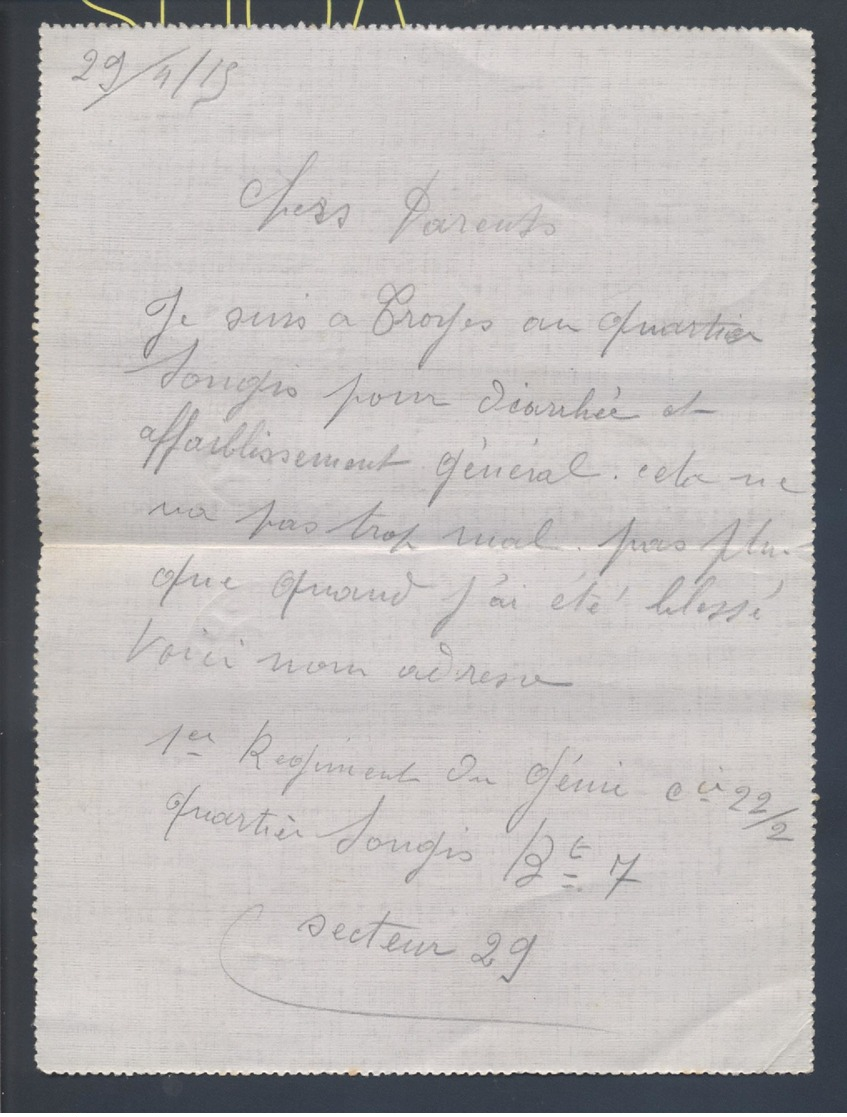 29/4/15
Chers Parents
Je suis a Troyes au quartier
Songis pour diarrhée et
affaiblissement général. cela ne
va pas trop mal. pas plus
que quand j'ai été blessé
Voici mon adresse
1er Regiment du Génie cie 22/2
quartier Songis Bt 7
secteur 29